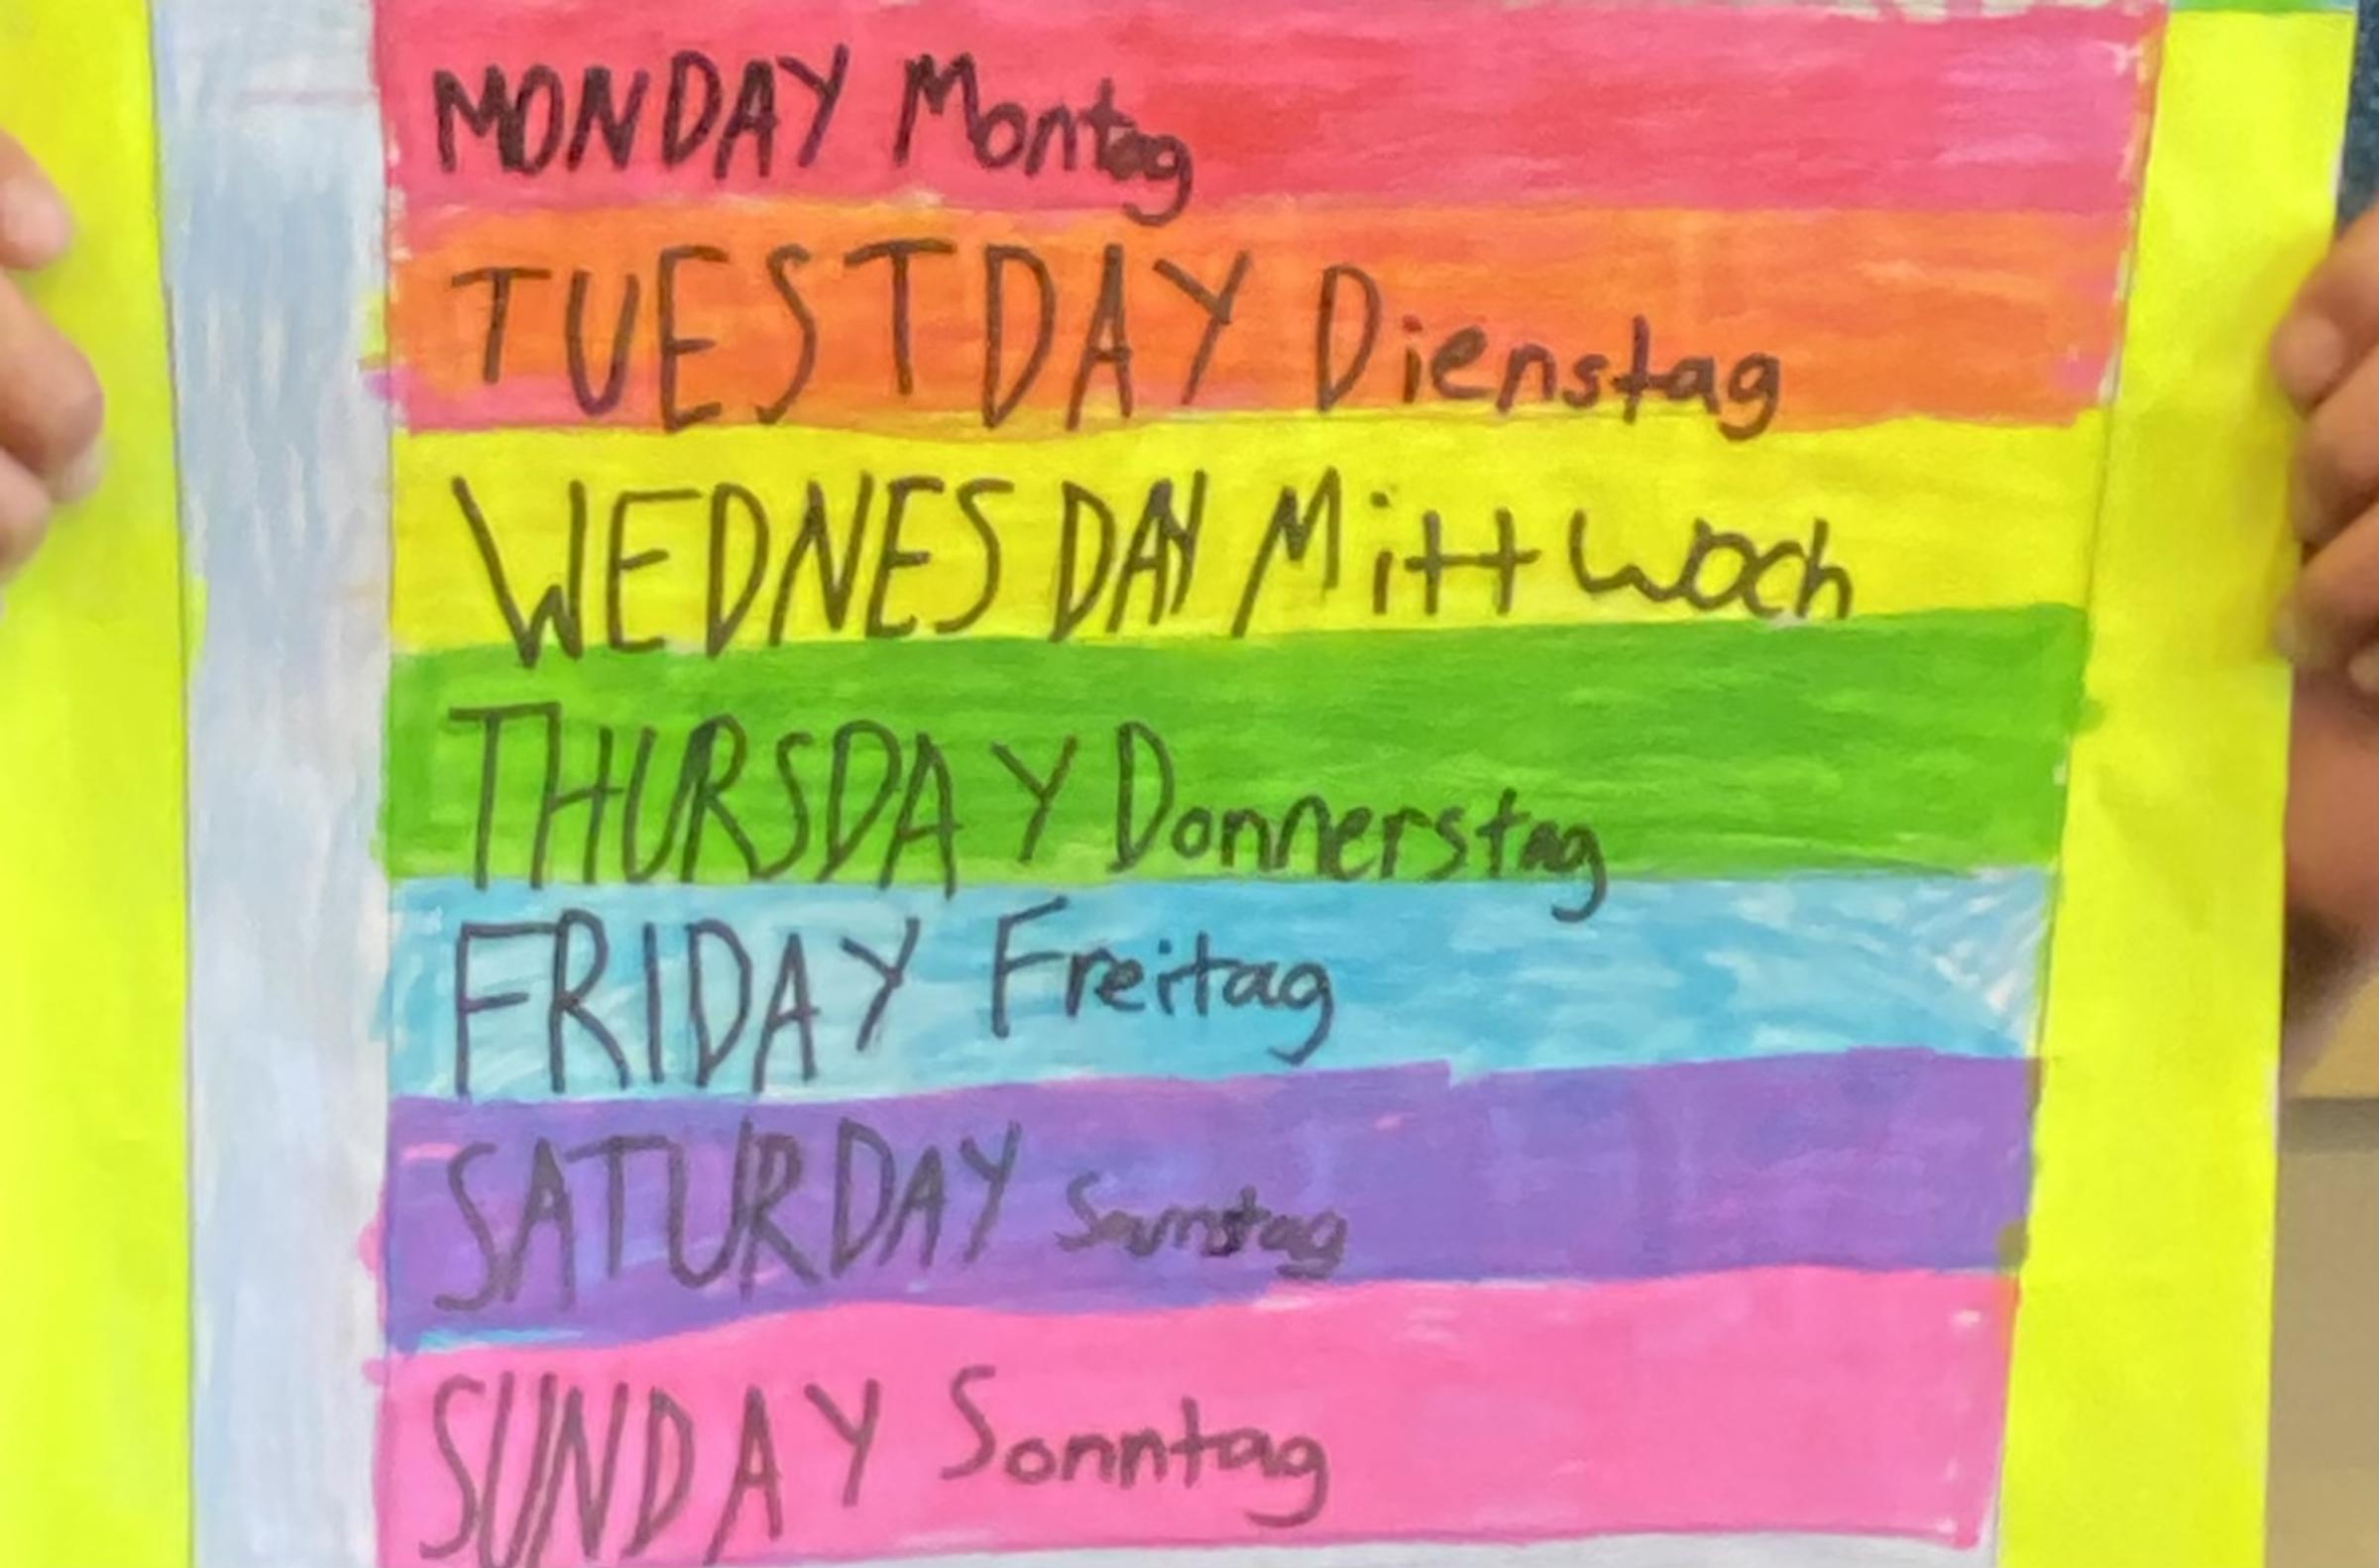 MONDAY Montag
TUESTDAY Dienstag
WEDNESDAY Mittwoch
THURSDAY Donnerstag
FRIDAY Freitag
SATURDAY Samstag
SUNDAY Sonntag